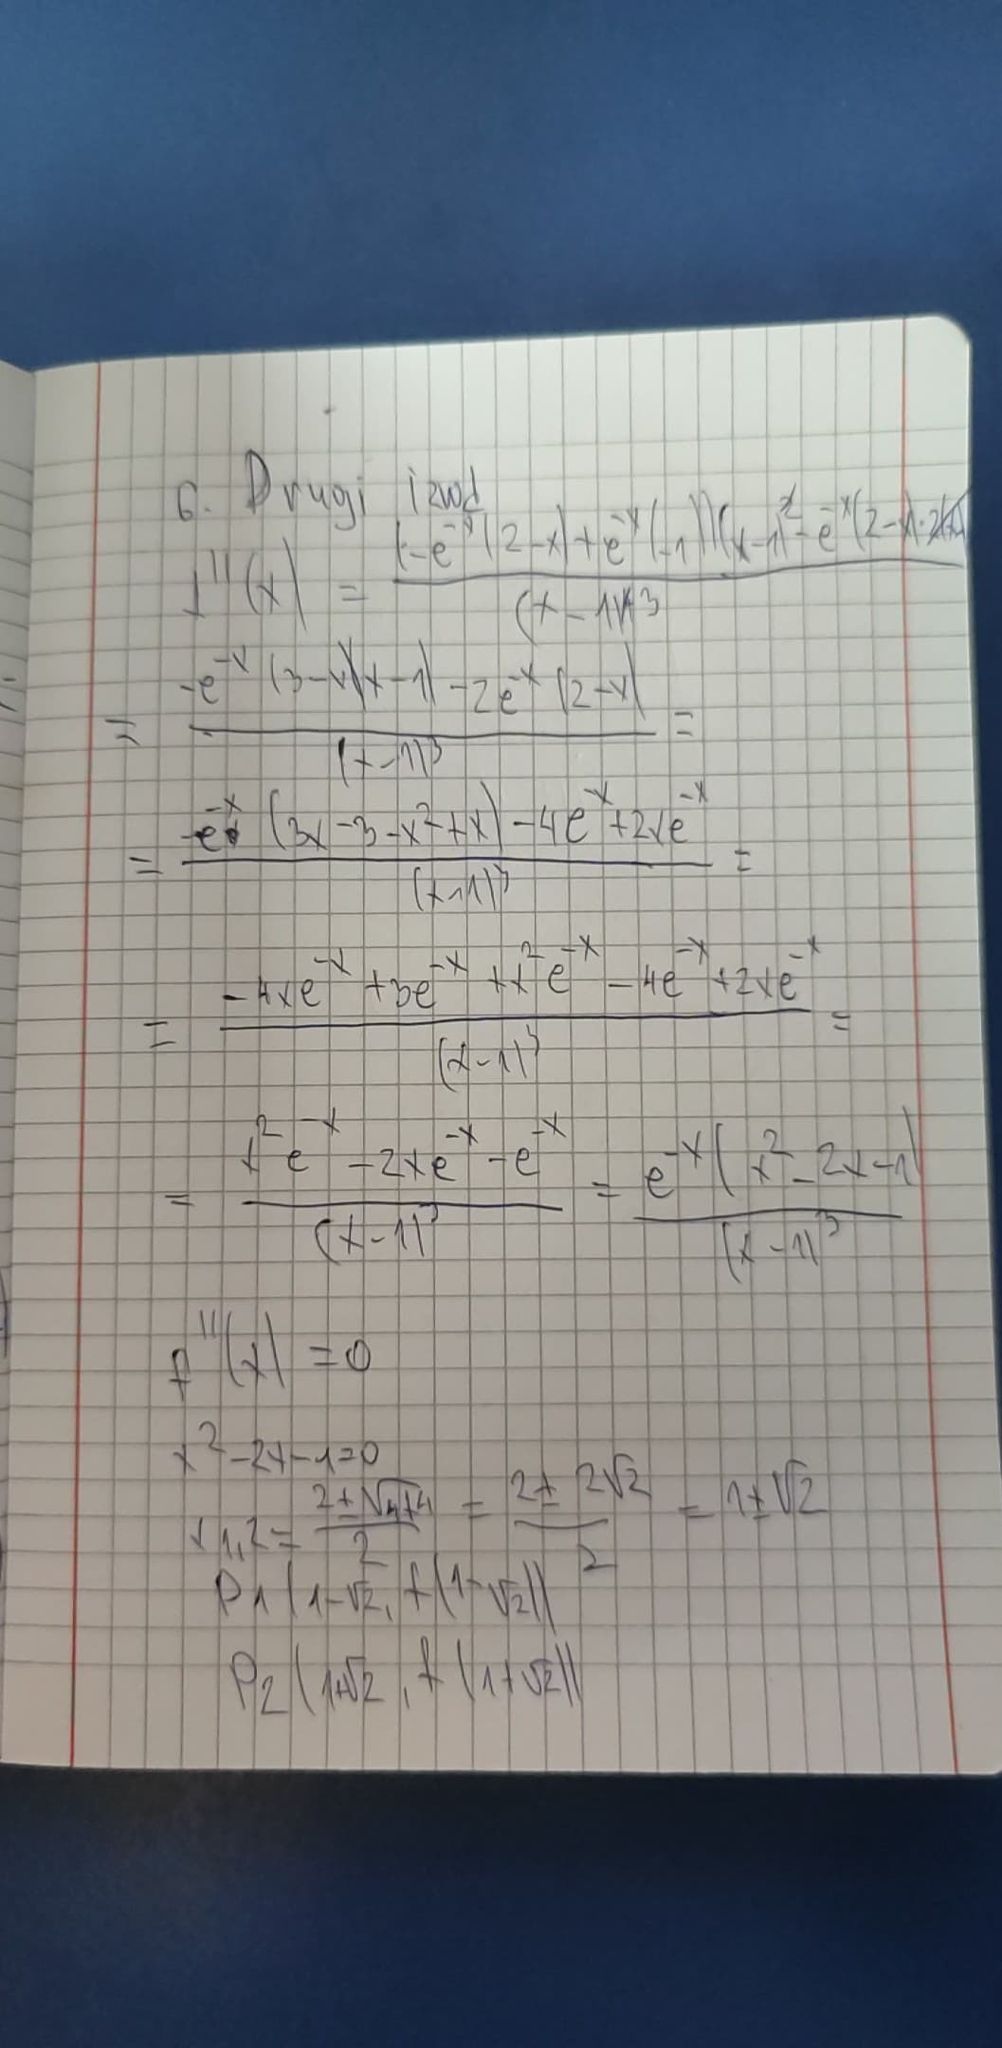 6. Drugi izvod
f''(x) = ((-e^-x (2-x) + e^-x (-1))(x-1)^2 - e^-x (2-x)·2(x-1)) / (x-1)^4 3
= (-e^-x (3-x)(x-1) - 2e^-x (2-x)) / (x-1)^3 =
= (-e^-x (3x-3-x^2+x) - 4e^-x + 2xe^-x) / (x-1)^3 =
= (-4xe^-x + 3e^-x + x^2 e^-x - 4e^-x + 2xe^-x) / (x-1)^3 =
= (x^2 e^-x - 2xe^-x - e^-x) / (x-1)^3 = e^-x (x^2 - 2x - 1) / (x-1)^3
f''(x) = 0
x^2 - 2x - 1 = 0
x1,2 = (2 ± √4+4) / 2 = (2 ± 2√2) / 2 = 1 ± √2
P1 (1-√2, f(1-√2))
P2 (1+√2, f(1+√2))